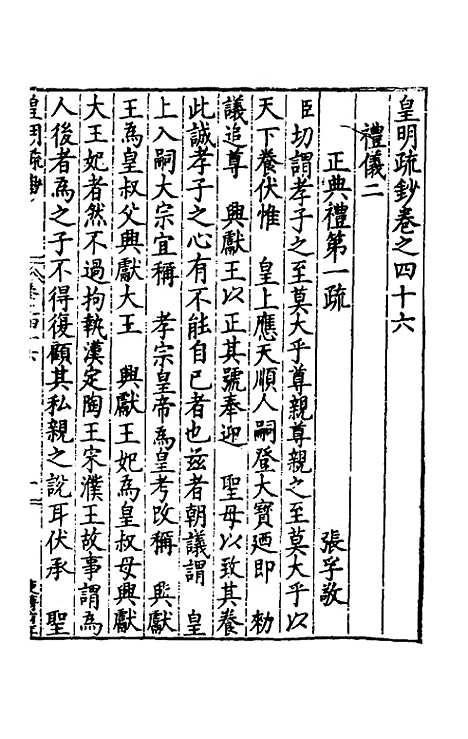 皇明疏鈔卷之四十六
禮儀二
正典禮第一疏 張孚敬
臣切謂孝子之至莫大乎尊親尊親之至莫大乎以
天下養伏惟 皇上應天順人嗣登大寶廼即 勑
議追尊 興獻王以正其號奉迎 聖母以致其養
此誠孝子之心有不能自已者也茲者朝議謂 皇
上入嗣大宗宜稱 孝宗皇帝為皇考改稱 興獻
王為皇叔父興獻大王 興獻王妃為皇叔母興獻
大王妃者然不過拘執漢定陶王宋濮王故事謂為
人後者為之子不得復顧其私親之說耳伏承 聖
皇明疏鈔 卷之四十六